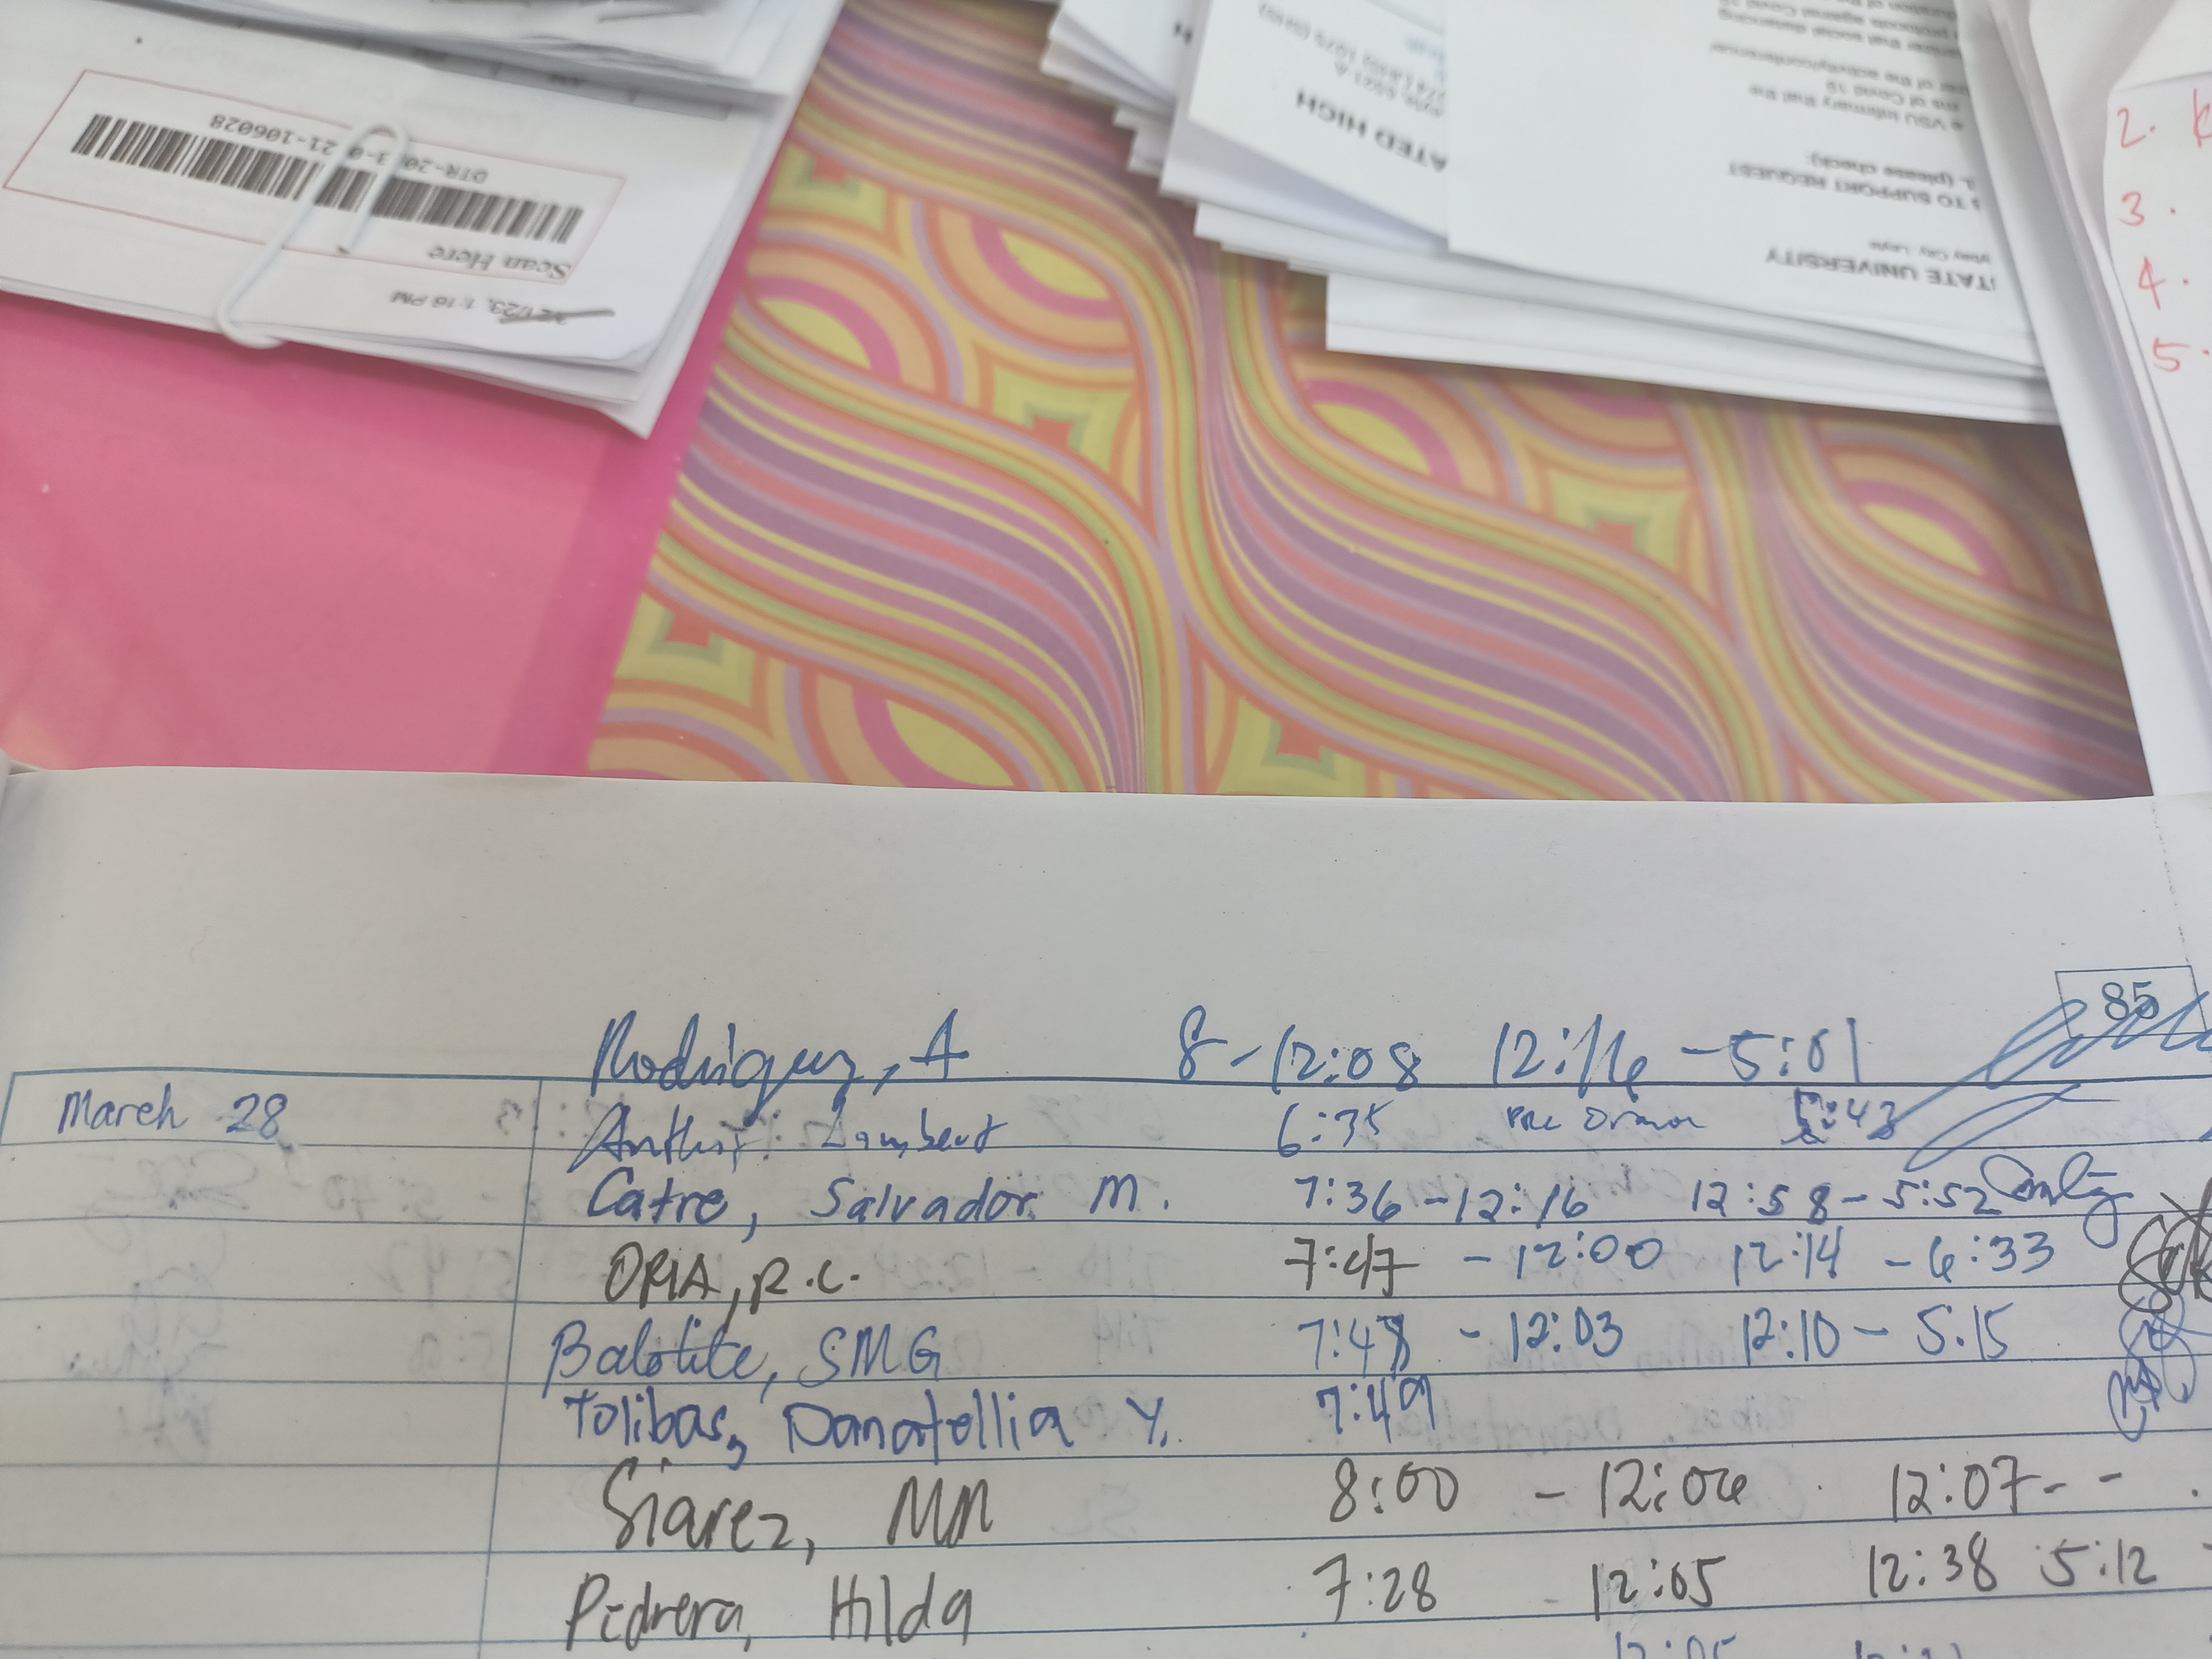 DTR-20 3-0 21-106028
Scan Here
1:16 PM
ATED HIGH
STATE UNIVERSITY
S TO SUPPORT REQUEST
(please check):
e VSU Infirmary that the
ms of Covid 19
of the activity/conference
that social distancing
protocols against Covid
2.
3.
4.
5.
85
Rodriguez, A 8-12:08 12:16 - 5:01
March 28
Lambert 6:35 5:43
Catre, Salvador M. 7:36 - 12:16 12:58 - 5:52
ORIA, R.C. 7:47 - 12:00 12:14 - 6:33
Balotite, SMG 7:48 - 12:03 12:10 - 5.15
Tolibas, Danatellia Y. 7:49
Siarez, MM 8:00 - 12:06 12:07 - -
Pedrera, Hilda 7:28 - 12:05 12:38 5:12 -
12:05